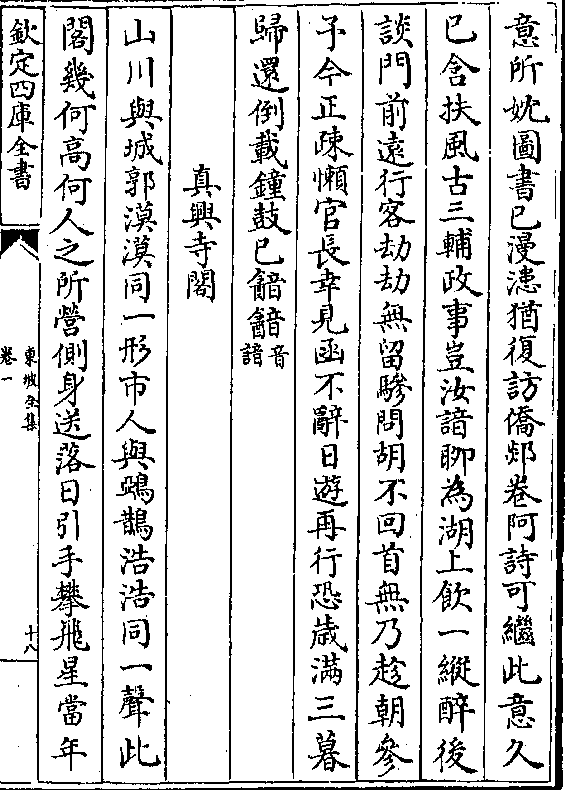 意所妉圖書已漫漶猶復訪僑郯卷阿詩可繼此意久
已含扶風古三輔政事豈汝諳聊為湖上飲一縱醉後
談門前遠行客劫劫無留驂問胡不回首無乃趁朝參
予今正疎懶官長幸見函不辭日遊再行恐歲滿三暮
歸還倒載鐘鼓已韽韽音諳
真興寺閣
山川與城郭漠漠同一形市人與鵶鵲浩浩同一聲此
閣幾何高何人之所營側身送落日引手攀飛星當年
欽定四庫全書
東坡全集
卷一
十八